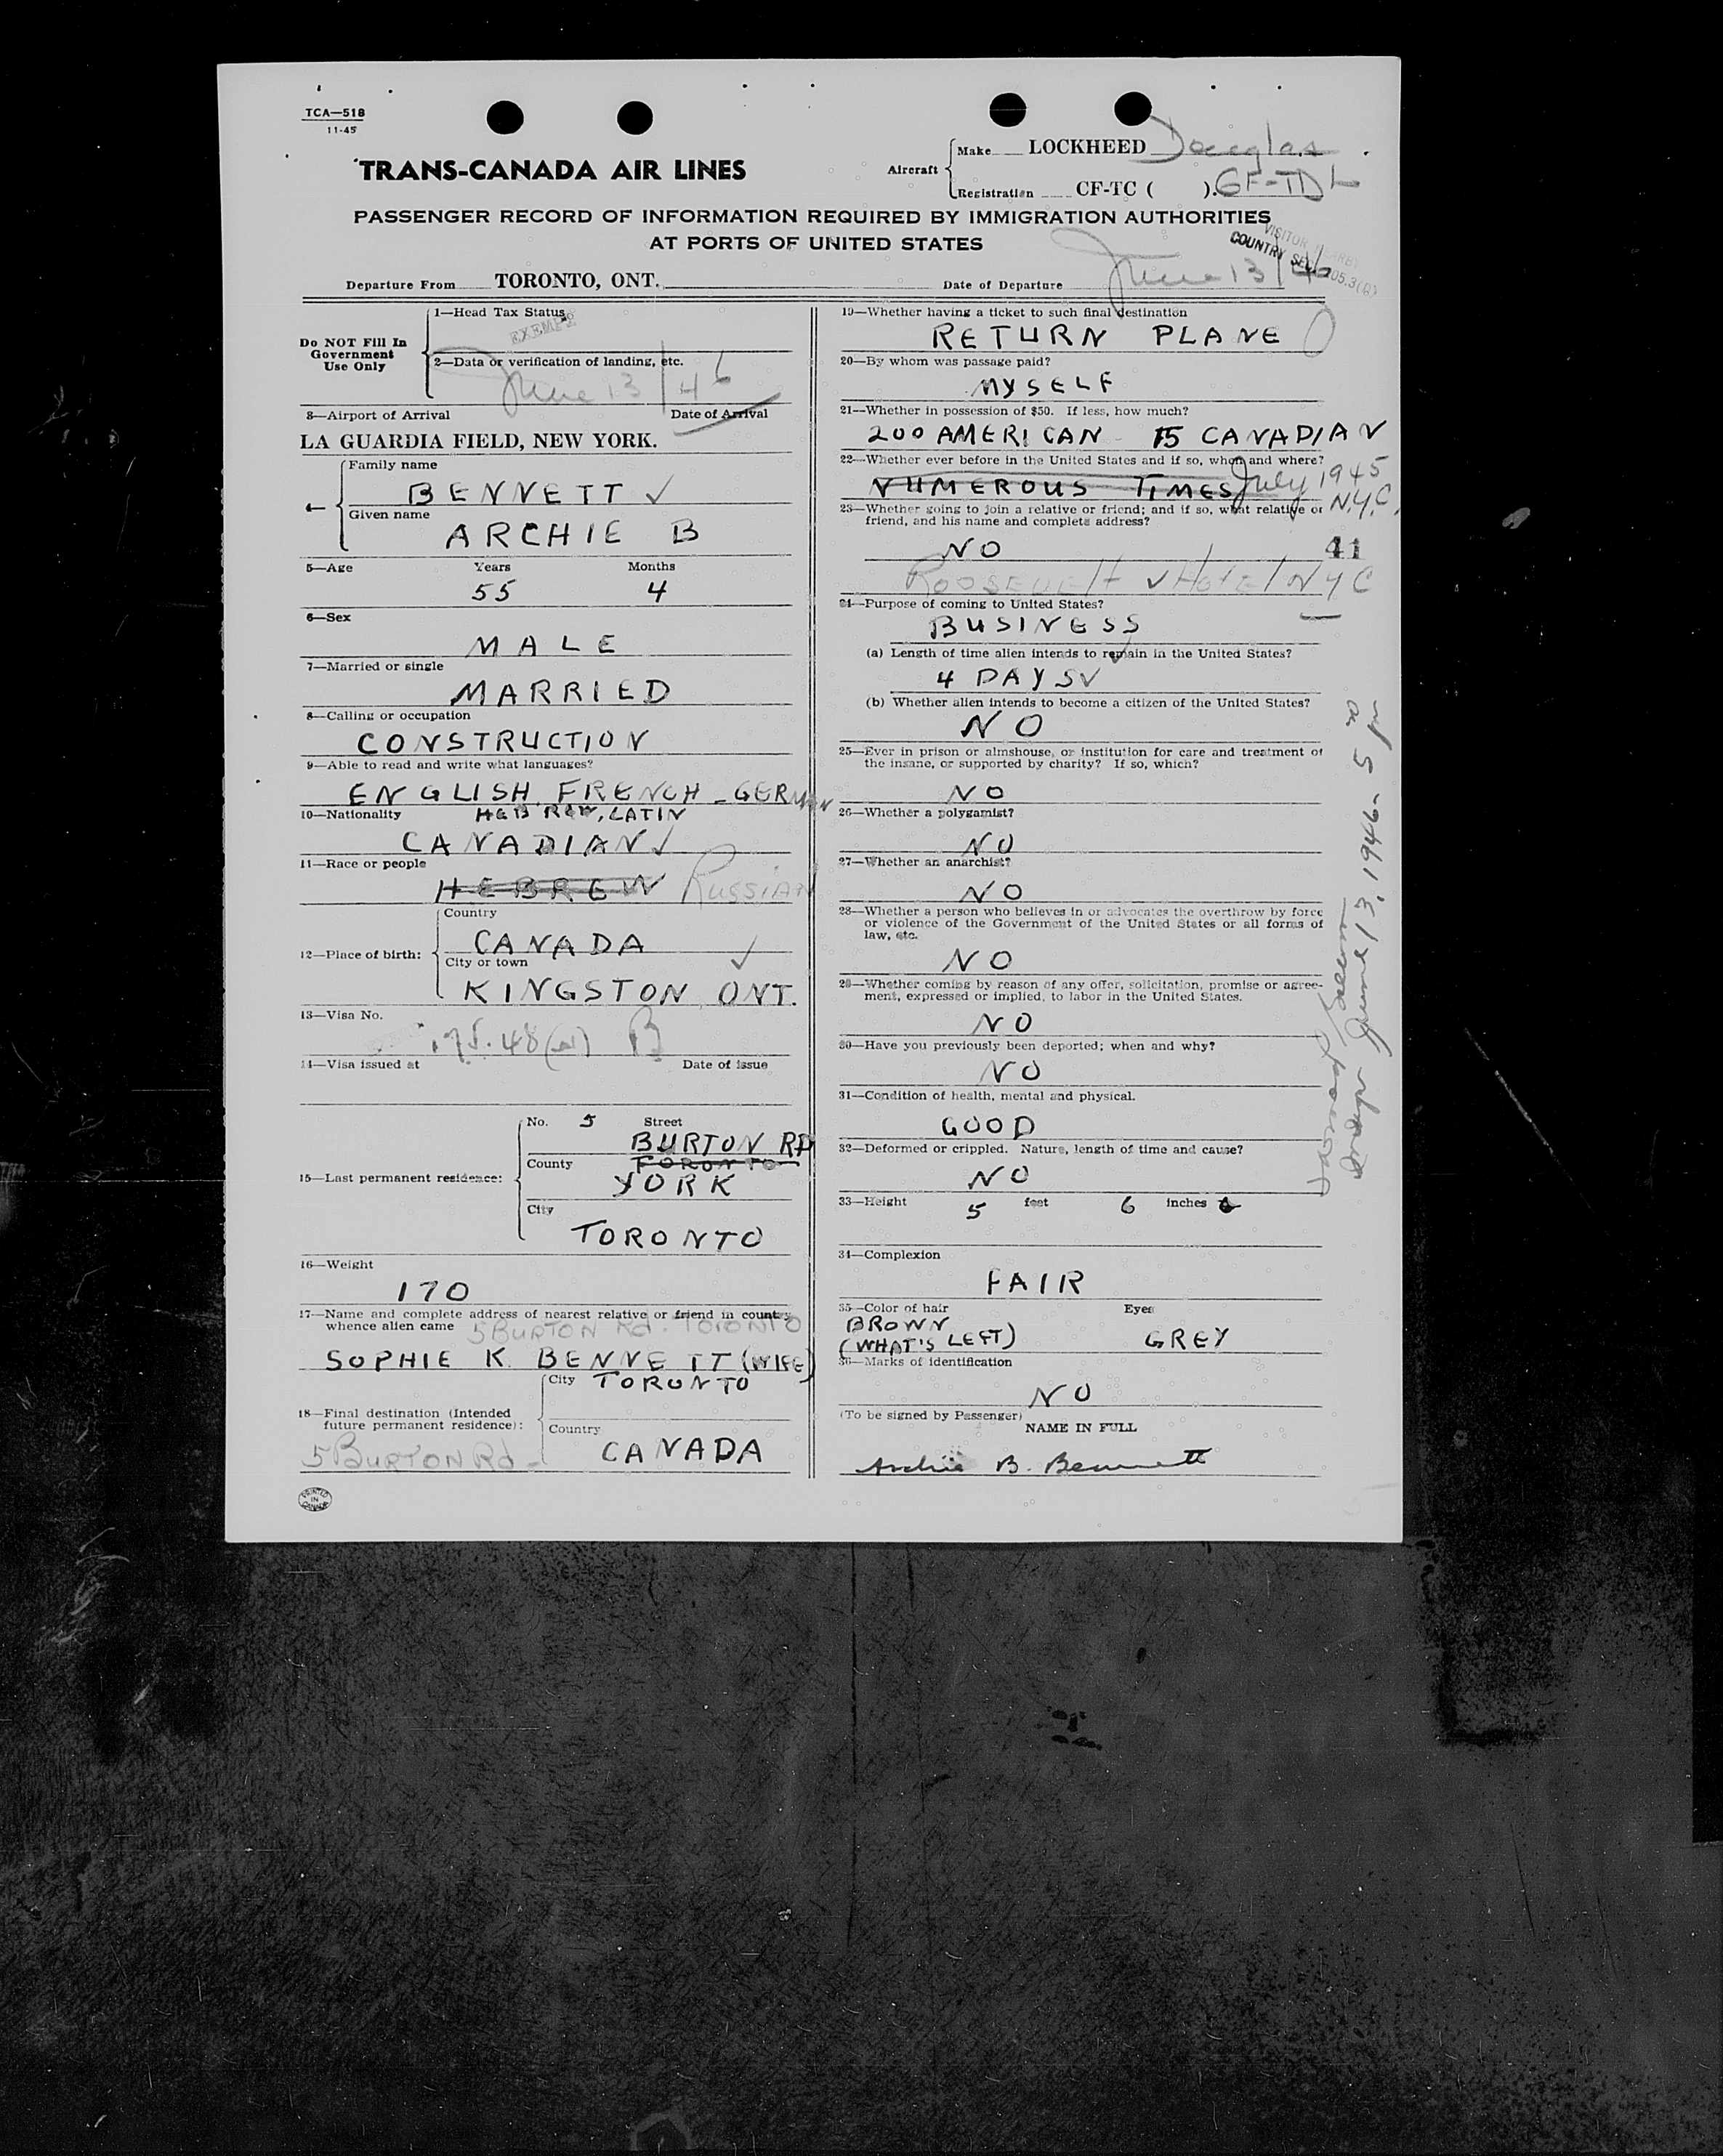 TCA—518
11-45
TRANS-CANADA AIR LINES
Aircraft
Make LOCKHEED Douglas
Registration CF-TC ( ). CF-TDL
PASSENGER RECORD OF INFORMATION REQUIRED BY IMMIGRATION AUTHORITIES
AT PORTS OF UNITED STATES
VISITOR
COUNTRY SEC. 105.3(B)
Departure From TORONTO, ONT.
Date of Departure June 13/46
Do NOT Fill In
Government
Use Only
1—Head Tax Status
EXEMPT
2—Data or verification of landing, etc.
June 13/46
3—Airport of Arrival Date of Arrival
LA GUARDIA FIELD, NEW YORK.
4—
Family name
BENNETT ✓
Given name
ARCHIE B
5—Age Years Months
55 4
6—Sex
MALE
7—Married or single
MARRIED
8—Calling or occupation
CONSTRUCTION
9—Able to read and write what languages?
ENGLISH, FRENCH - GERMAN
HEBREW, LATIN
10—Nationality
CANADIAN ✓
11—Race or people
HEBREW Russian
12—Place of birth:
Country
CANADA ✓
City or town
KINGSTON, ONT.
13—Visa No.
B
14—Visa issued at Date of issue
15—Last permanent residence:
No. 5 Street
BURTON RD
County TORONTO
YORK
City
TORONTO
16—Weight
170
17—Name and complete address of nearest relative or friend in country
whence alien came 5 BURTON Rd. TORONTO
SOPHIE K. BENNETT (WIFE)
18—Final destination (Intended
future permanent residence):
City TORONTO
Country
5 BURTON Rd - CANADA
PRINTED
IN
CANADA
19—Whether having a ticket to such final destination
RETURN PLANE
20—By whom was passage paid?
MYSELF
21—Whether in possession of $50. If less, how much?
200 AMERICAN - 15 CANADIAN
22—Whether ever before in the United States and if so, when and where?
NUMEROUS TIMES July 1945
N.Y.C.
23—Whether going to join a relative or friend; and if so, what relative or
friend, and his name and complete address?
NO 41
ROOSEVELT ✓ HOTEL NYC
24—Purpose of coming to United States?
BUSINESS
(a) Length of time alien intends to remain in the United States?
4 DAYS ✓
(b) Whether alien intends to become a citizen of the United States?
NO
25—Ever in prison or almshouse, or institution for care and treatment of
the insane, or supported by charity? If so, which?
NO
26—Whether a polygamist?
NO
27—Whether an anarchist?
NO
28—Whether a person who believes in or advocates the overthrow by force
or violence of the Government of the United States or all forms of
law, etc.
NO
29—Whether coming by reason of any offer, solicitation, promise or agree-
ment, expressed or implied, to labor in the United States.
NO
30—Have you previously been deported; when and why?
NO
31—Condition of health, mental and physical.
GOOD
32—Deformed or crippled. Nature, length of time and cause?
NO
33—Height 5 feet 6 inches
34—Complexion
FAIR
35—Color of hair Eyes
BROWN
(WHAT'S LEFT) GREY
36—Marks of identification
NO
(To be signed by Passenger)
NAME IN FULL
Archie B. Bennett
June 13, 1946 - 5 30 pm